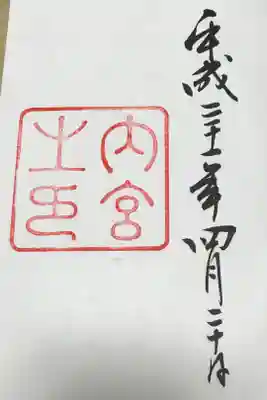 平成二十一年四月二十日
内宮
之印